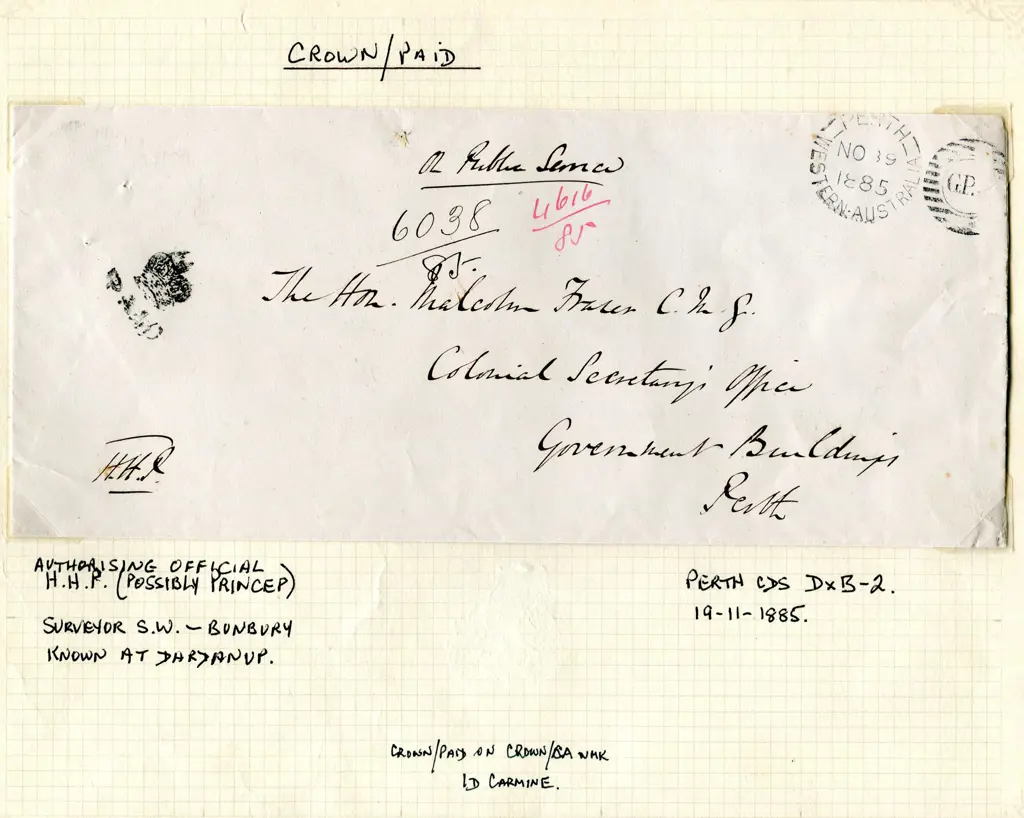 CROWN/PAID
PERTH
WESTERN·AUSTRALIA
NO 19
1885
G.P.
On Public Service
6038
85.
4616
85
PAID
The Hon. Malcolm Fraser C. M. G.
Colonial Secretary's Office
Government Buildings
Perth
H.H.P.
AUTHORISING OFFICIAL
H.H.P. (POSSIBLY PRINCEP)
SURVEYOR S.W. – BUNBURY
KNOWN AT DARDANUP.
PERTH CDS DxB-2.
19-11-1885.
CROWN/PAID ON CROWN/BA WMK
1D CARMINE.